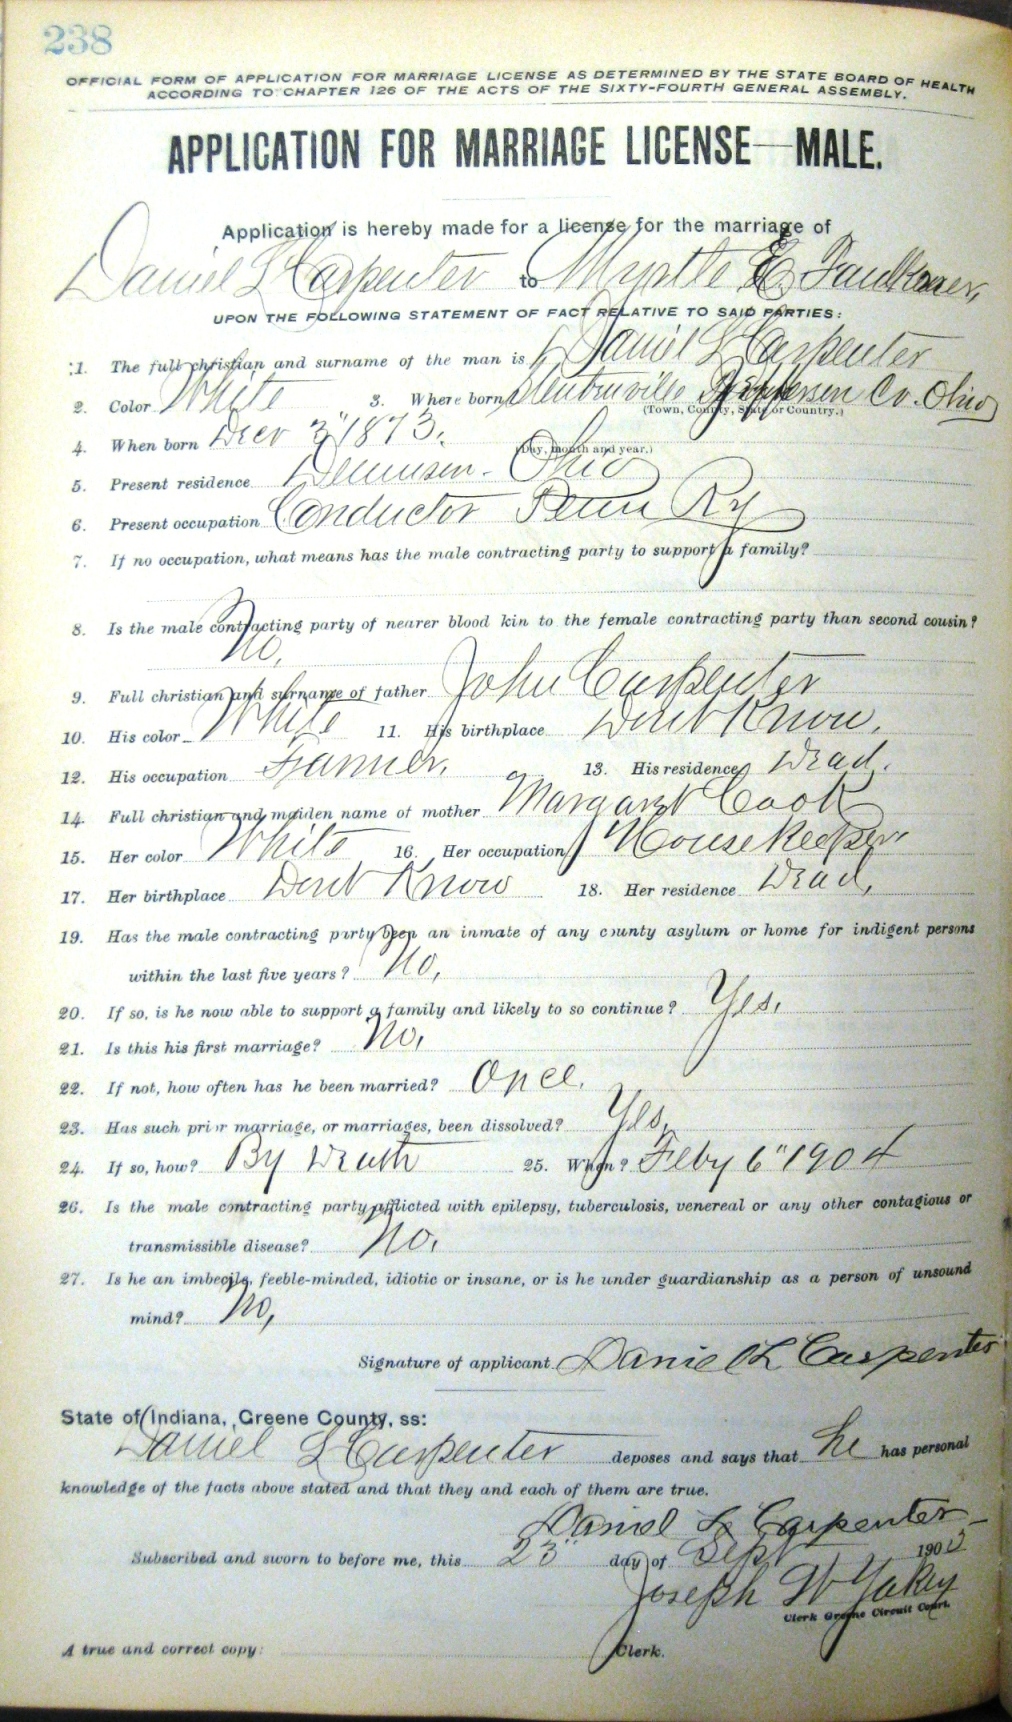 238
OFFICIAL FORM OF APPLICATION FOR MARRIAGE LICENSE AS DETERMINED BY THE STATE BOARD OF HEALTH
ACCORDING TO CHAPTER 126 OF THE ACTS OF THE SIXTY-FOURTH GENERAL ASSEMBLY.
APPLICATION FOR MARRIAGE LICENSE—MALE.
Application is hereby made for a license for the marriage of
Daniel L Carpenter to Myrtle E. Faulkner,
UPON THE FOLLOWING STATEMENT OF FACT RELATIVE TO SAID PARTIES:
1. The full christian and surname of the man is Daniel L Carpenter
2. Color White 3. Where born Jefferson Co. Ohio
(Town, County, State or Country.)
4. When born Decr 3" 1873.
(Day, month and year.)
5. Present residence Dennison. Ohio
6. Present occupation Conductor Penn Ry
7. If no occupation, what means has the male contracting party to support a family?
8. Is the male contracting party of nearer blood kin to the female contracting party than second cousin?
No.
9. Full christian and surname of father John Carpenter
10. His color White 11. His birthplace Dont Know.
12. His occupation Farmer. 13. His residence Dead.
14. Full christian and maiden name of mother Margaret Cook
15. Her color White 16. Her occupation Housekeeper
17. Her birthplace Dont Know 18. Her residence Dead,
19. Has the male contracting party been an inmate of any county asylum or home for indigent persons
within the last five years? No,
20. If so, is he now able to support a family and likely to so continue? Yes.
21. Is this his first marriage? No,
22. If not, how often has he been married? Once.
23. Has such prior marriage, or marriages, been dissolved? Yes,
24. If so, how? By Death 25. When? Feby 6" 1904
26. Is the male contracting party afflicted with epilepsy, tuberculosis, venereal or any other contagious or
transmissible disease? No,
27. Is he an imbecile, feeble-minded, idiotic or insane, or is he under guardianship as a person of unsound
mind? No,
Signature of applicant Daniel L Carpenter
State of Indiana, Greene County, ss:
Daniel L Carpenter deposes and says that he has personal
knowledge of the facts above stated and that they and each of them are true.
Daniel L Carpenter
Subscribed and sworn to before me, this 23" day of Sept 190
Joseph W Yakey
Clerk Greene Circuit Court.
A true and correct copy: Clerk.